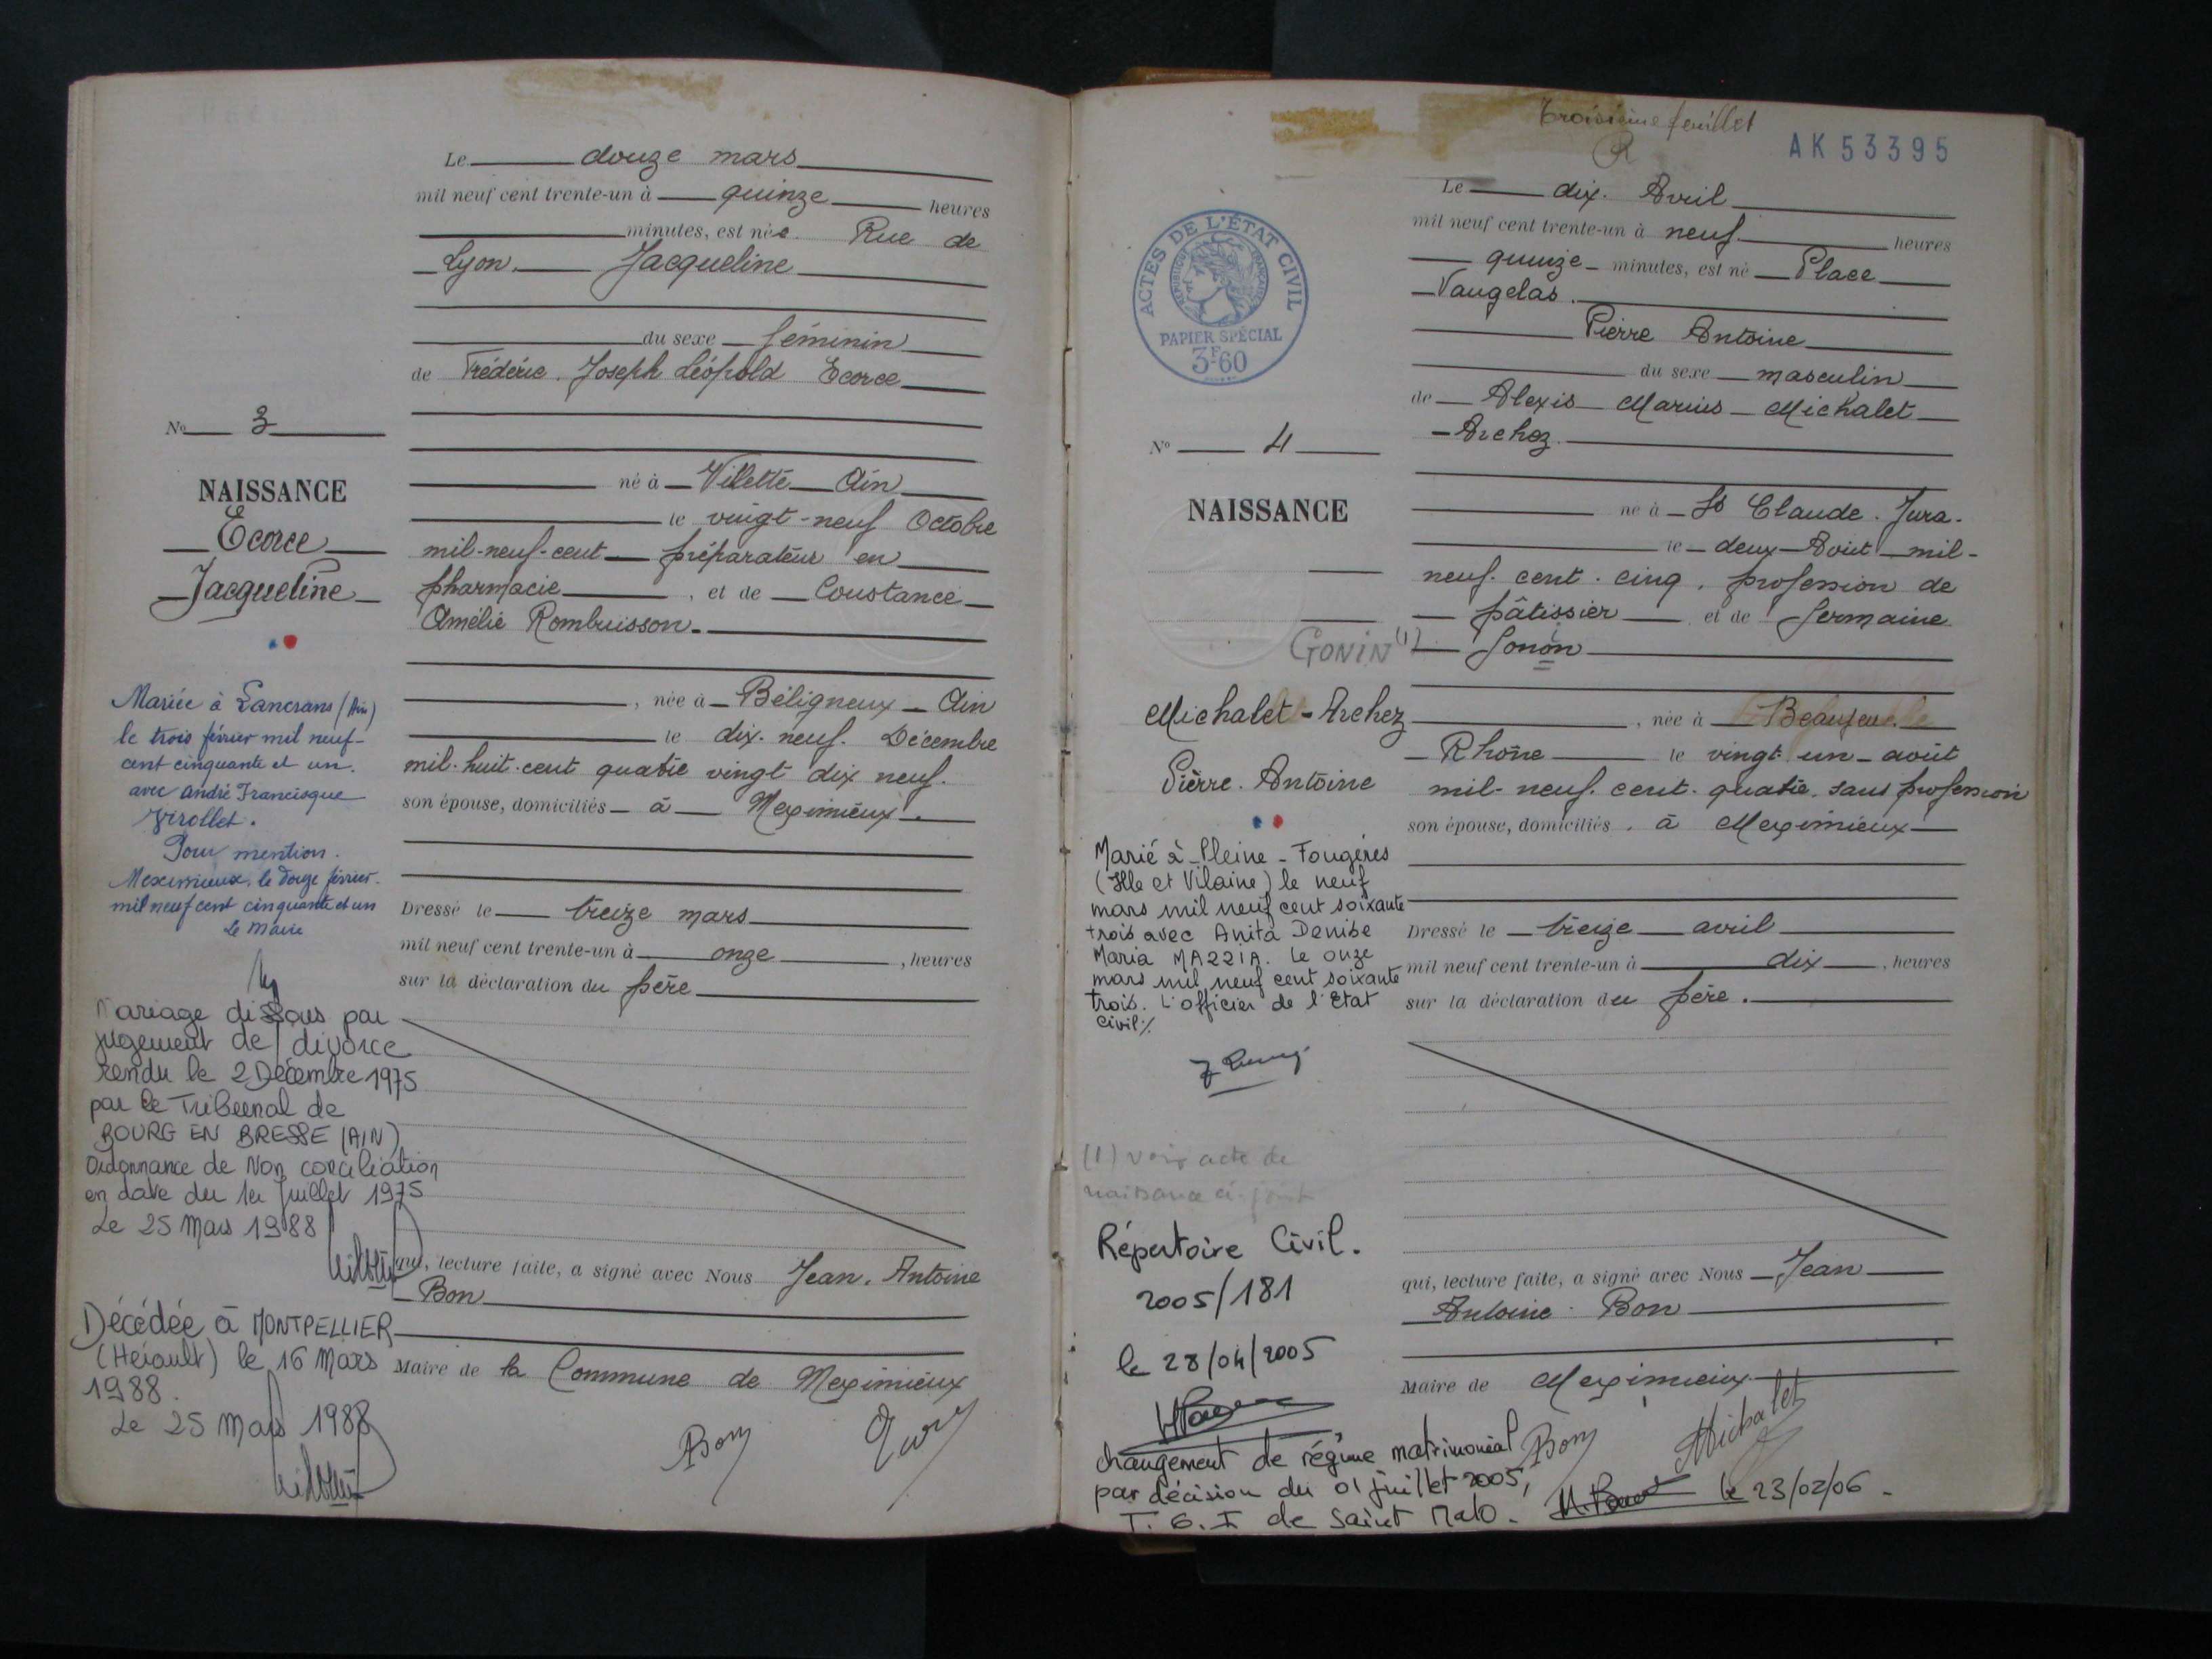 Le douze mars
mil neuf cent trente-un à quinze heures
minutes, est née. Rue de
Lyon. Jacqueline
du sexe féminin
de Frédéric. Joseph Léopold Ecorce
né à Villette Ain
le vingt-neuf Octobre
mil-neuf-cent préparateur en
pharmacie, et de Constance
Amélie Rombuisson.
, née à Béligneux Ain
le dix. neuf. Décembre
mil. huit. cent quatre vingt dix neuf.
son épouse, domiciliés à Meximieux.
Dressé le treize mars
mil neuf cent trente-un à onze, heures
sur la déclaration du père
qui, lecture faite, a signé avec Nous Jean. Antoine
Bon
Maire de la Commune de Meximieux
Bon
No 3
NAISSANCE
Ecorce
Jacqueline
Mariée à Lancrans (Ain)
le trois février mil neuf-
cent cinquante et un.
avec André Francisque
Virollet.
Pour mention.
Meximieux, le douze février.
mil neuf cent cinquante et un
Le Maire
Mariage dissous par
jugement de divorce
rendu le 2 Décembre 1975
par le Tribunal de
BOURG EN BRESSE (AIN)
Ordonnance de Non conciliation
en date du 1er Juillet 1975
Le 25 Mars 1988
Décédée à MONTPELLIER
(Hérault) le 16 Mars
1988.
Le 25 Mars 1988
Troisième feuillet
AK 53395
ACTES DE L'ÉTAT CIVIL
RÉPUBLIQUE FRANÇAISE
PAPIER SPÉCIAL
3F60
Le dix. Avril
mil neuf cent trente-un à neuf heures
quinze minutes, est né Place
Vaugelas.
Pierre Antoine
du sexe masculin
de Alexis Marius Michalet
-Archez.
né à St Claude. Jura.
le deux Août mil-
neuf. cent. cinq. profession de
pâtissier et de Germaine
Gonon
, née à Beaujeu.
Rhône le vingt-un août
mil-neuf. cent. quatre. sans profession
son épouse, domiciliés. à Meximieux
Dressé le treize avril
mil neuf cent trente-un à dix, heures
sur la déclaration du père.
qui, lecture faite, a signé avec Nous Jean
Antoine. Bon
Maire de Meximieux
Bon Michalet
No 4
NAISSANCE
GONIN (1)
Michalet-Archez
Pierre. Antoine
Marié à Pleine-Fougères
(Ille et Vilaine) le neuf
mars mil neuf cent soixante
trois avec Anita Denise
Maria MAZZIA. Le onze
mars mil neuf cent soixante
trois. L'officier de l'Etat
civil./.
(1) voir acte de
naissance ci-joint
Répertoire Civil.
2005/181
le 28/04/2005
changement de régime matrimonial
par décision du 01 juillet 2005,
T.G.I de Saint Malo. le 23/02/06.